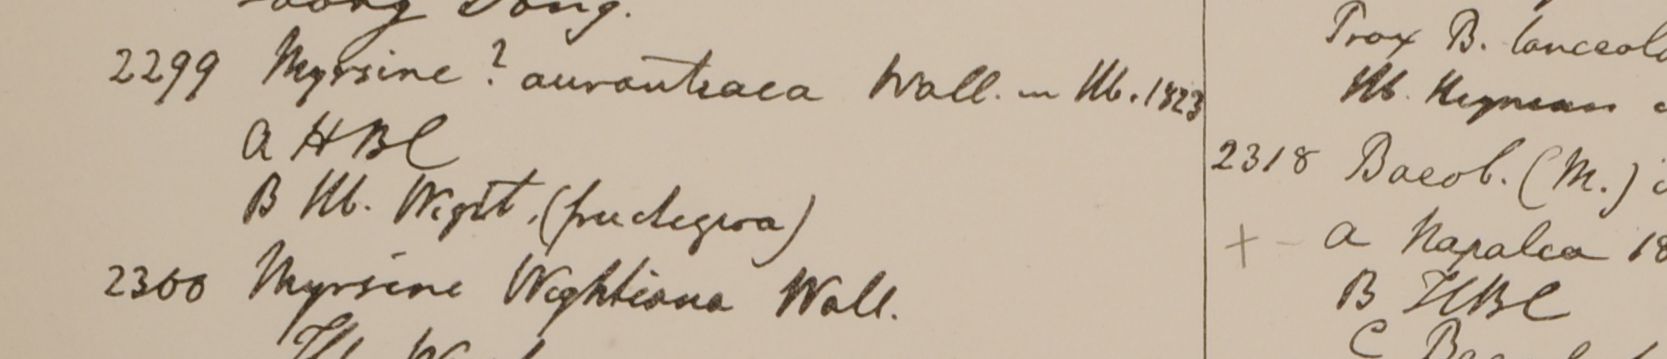 Dong.
2299 Myrsine ? aurantiaca Wall. in Hb. 1823
a HBC
B Hb. Wight.
2300 Myrsine Wightiana Wall.
Hb.
B. lanceola
Hb. Heynean
2318 Baeob. (M.)
+ - a Napalea 18
B HBC
C